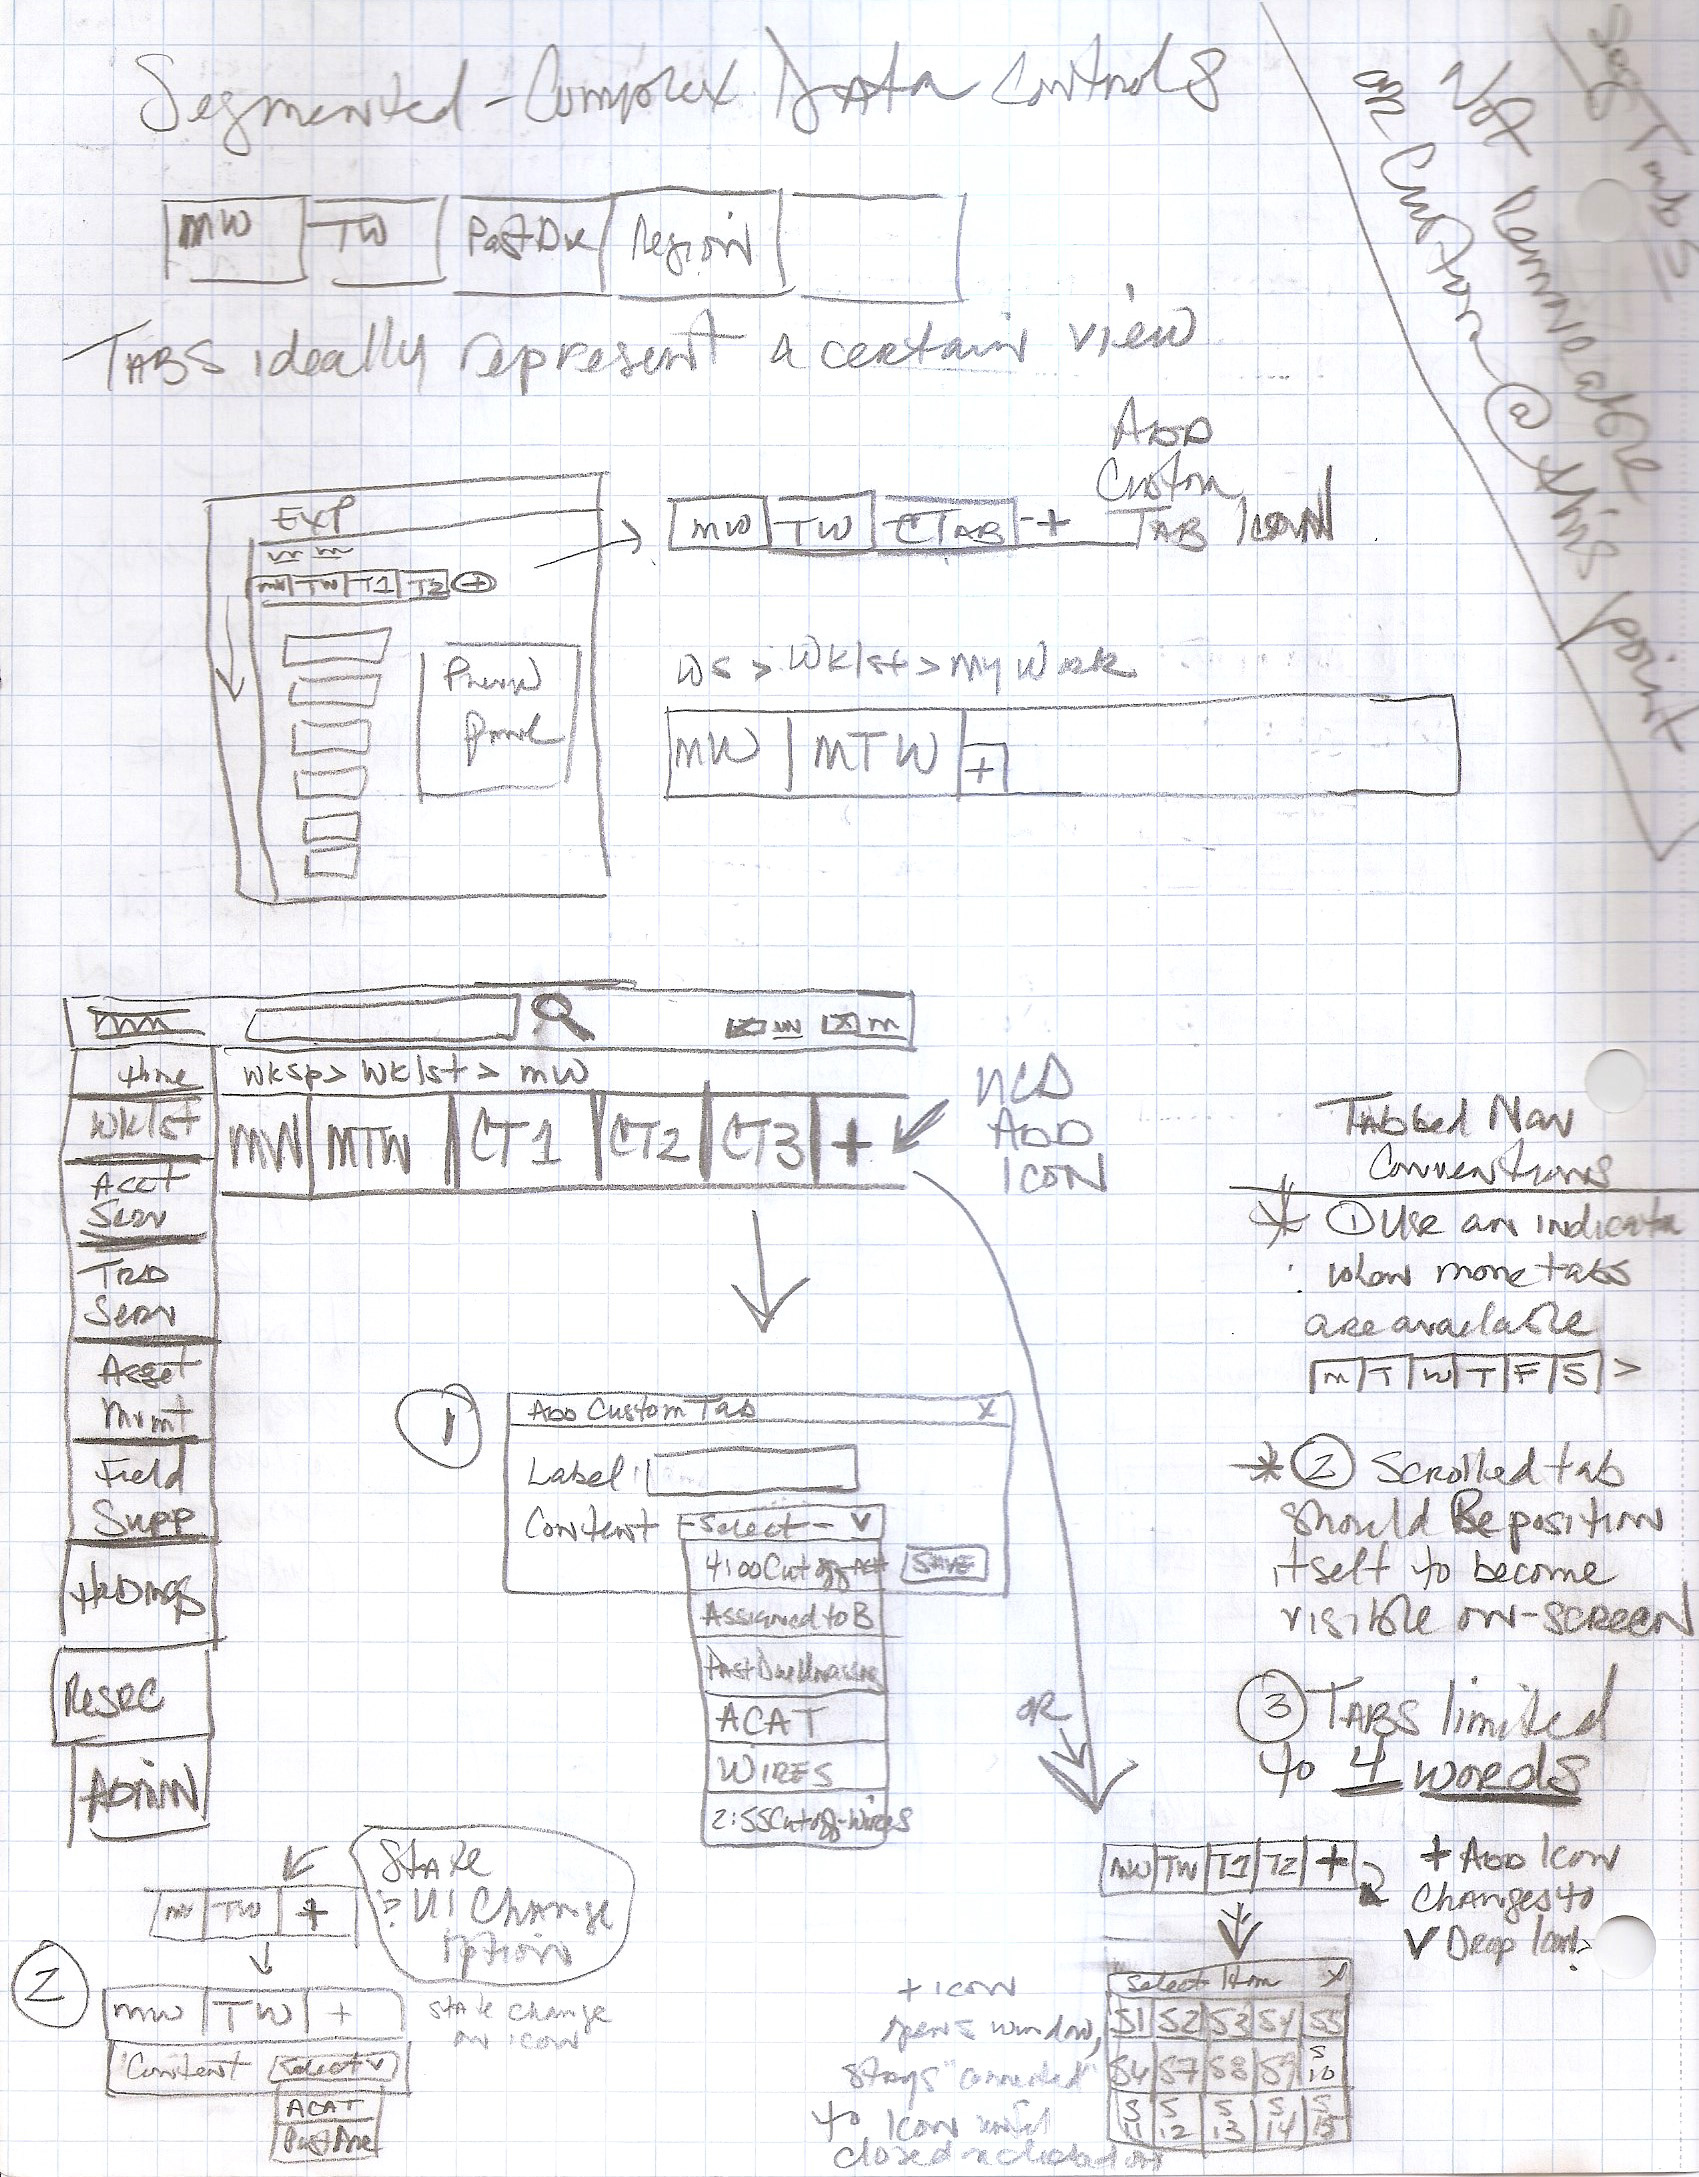 Segmented - Complex Data Controls
Seg Tabs
Not Removeable
or Custom @ this point
MW TW Past Due Region
TABS ideally represent a certain view
ADD
Custom
TAB ICON
EXP
MW TW T1 T2 +
MW TW CTAB +
Preview
pane
WS > Wklst > My Work
MW MTW +
Home
Wksp > Wklst > MW
MW MTW CT1 CT2 CT3 +
ADD
ICON
Wklst
Acct
Serv
TRD
Serv
Asset
Mvmt
Field
Supp
HLDings
ReSRC
ADMIN
Tabbed Nav
Conventions
* 1 Use an indicator
when more tabs
are available
M T W T F S >
* 2 Scrolled tab
should Reposition
itself to become
visible on-screen
3 TABS limited
to 4 words
1
ADD Custom Tab X
Label:
Content -Select- V
4:00 Cutoff-
SAVE
Assigned to B
Past Due
ACAT
WIRES
2:55 Cutoff-Wires
OR
MW TW T1 T2 +
+ ADD Icon
Changes to
V Drop Icon?
State
UI Change
option
MW TW +
2
MW TW +
State change
on icon
Content Select V
ACAT
Past Due
+ icon
opens window,
stays "connected"
to icon until
closed
Select Item X
S1 S2 S3 S4 S5
S6 S7 S8 S9 S10
S11 S12 S13 S14 S15